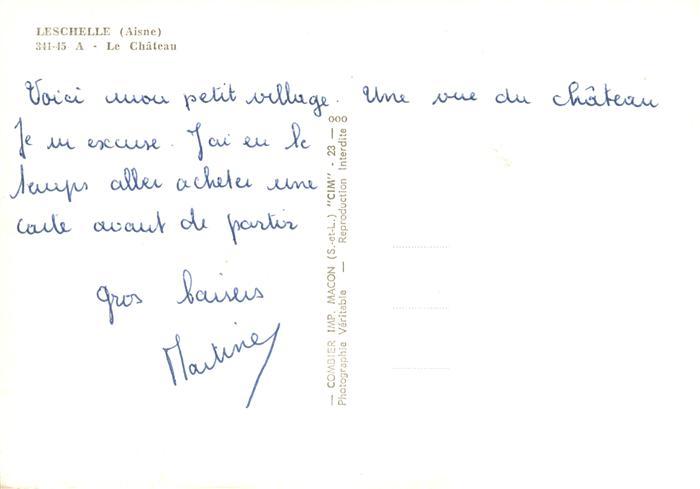 LESCHELLE (Aisne)
341-45 A - Le Château
Voici mon petit village. Une vue du château
Je m excuse. J'ai eu le
temps aller acheter une
carte avant de partir
gros baisers
Martine
— COMBIER IMP. MACON (S.-et-L.) "CIM" - 23 — 000
Photographie Véritable — Reproduction Interdite